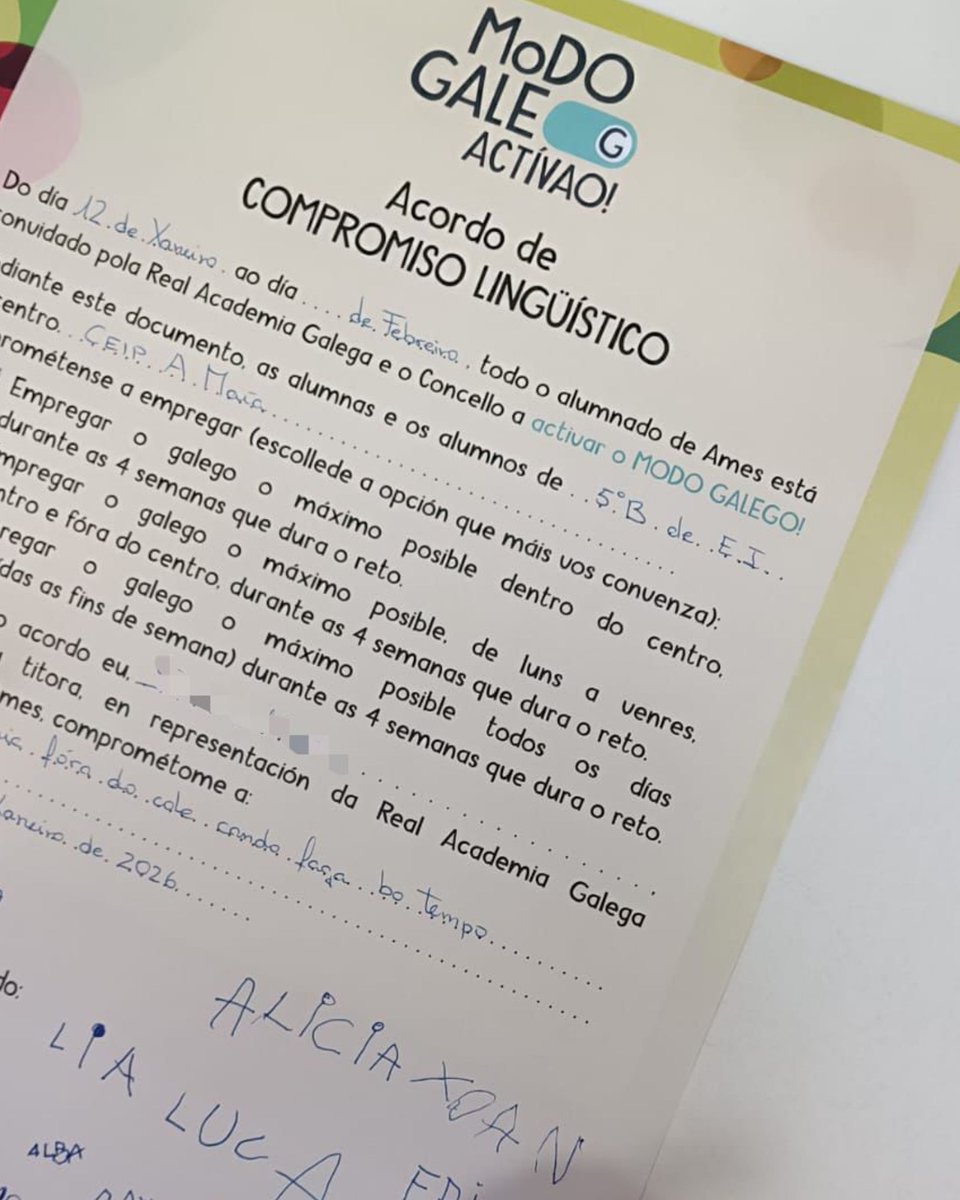 MODO
GALEG
ACTÍVAO!
Acordo de
COMPROMISO LINGÜÍSTICO
Do día 12 de Xaneiro ao día .... de Febreiro, todo o alumnado de Ames está
convidado pola Real Academia Galega e o Concello a activar o MODO GALEGO!
diante este documento, as alumnas e os alumnos de ..5ºB. de..E.I...
centro...CEIP. A. Maía
prométense a empregar (escollede a opción que máis vos convenza):
Empregar o galego o máximo posible dentro do centro,
durante as 4 semanas que dura o reto.
mpregar o galego o máximo posible, de luns a venres,
ntro e fóra do centro, durante as 4 semanas que dura o reto.
regar o galego o máximo posible todos os días
ídas as fins de semana) durante as 4 semanas que dura o reto.
o acordo eu,
titora, en representación da Real Academia Galega
mes, comprométome a:
fóra do cole cando faga bo tempo
Xaneiro de 2026
do:
ALICIA XOAN
LIA LUCA
ALBA